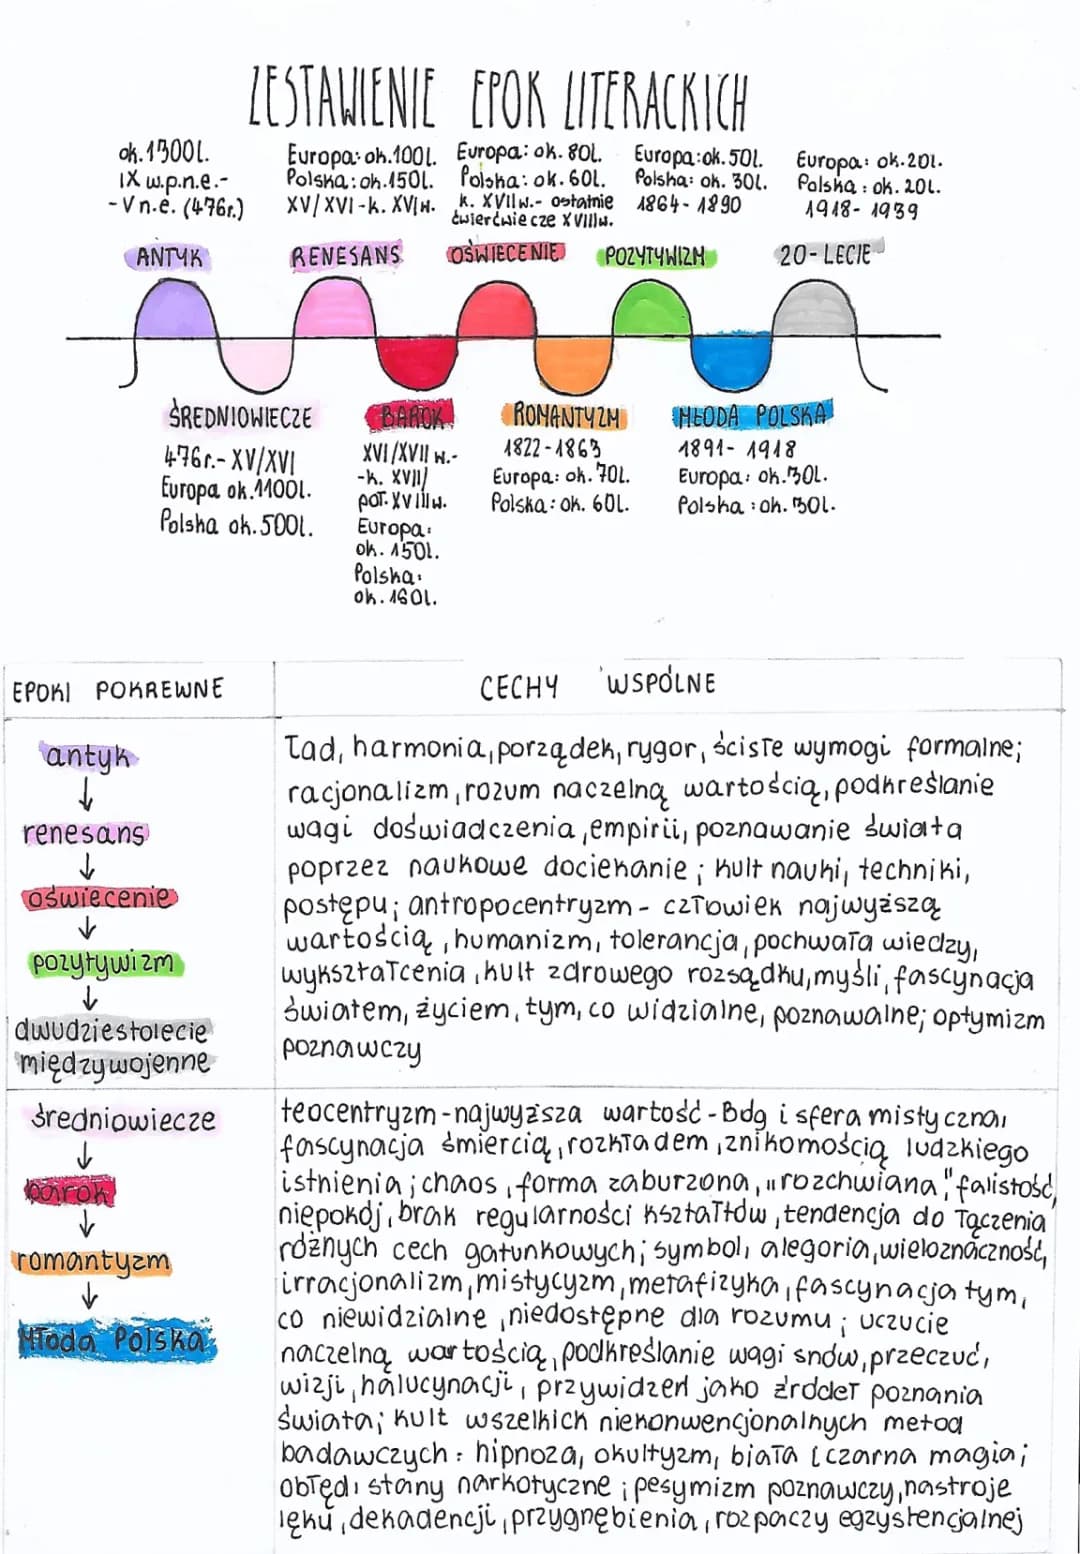 ZESTAWIENIE EPOK LITERACKICH
ok. 1300l.
IX w.p.n.e.-
- V n.e. (476r.)
Europa: ok. 100l.
Polska: ok. 150l.
XV/XVI - k. XVIw.
Europa: ok. 80l.
Polska: ok. 60l.
k. XVIIw.- ostatnie
ćwierćwiecze XVIIIw.
Europa: ok. 50l.
Polska: ok. 30l.
1864- 1890
Europa: ok. 20l.
Polska : ok. 20l.
1918- 1939
ANTYK
RENESANS
OŚWIECENIE
POZYTYWIZM
20- LECIE
ŚREDNIOWIECZE
476r.- XV/XVI
Europa ok. 1100l.
Polska ok. 500l.
BAROK
XVI/XVII w.-
-k. XVII/
poł. XVIIIw.
Europa:
ok. 150l.
Polska:
ok. 160l.
ROMANTYZM
1822-1863
Europa: ok. 70l.
Polska: ok. 60l.
MŁODA POLSKA
1891- 1918
Europa: ok. 30l.
Polska : ok. 30l.
EPOKI POKREWNE
CECHY WSPÓLNE
antyk
↓
renesans
↓
oświecenie
↓
pozytywizm
↓
dwudziestolecie
międzywojenne
Ład, harmonia, porządek, rygor, ścisłe wymogi formalne;
racjonalizm, rozum naczelną wartością, podkreślanie
wagi doświadczenia, empirii, poznawanie świata
poprzez naukowe dociekanie ; kult nauki, techniki,
postępu; antropocentryzm - człowiek najwyższą
wartością, humanizm, tolerancja, pochwała wiedzy,
wykształcenia, kult zdrowego rozsądku, myśli, fascynacja
światem, życiem, tym, co widzialne, poznawalne; optymizm
poznawczy
średniowiecze
↓
barok
↓
romantyzm
↓
Młoda Polska
teocentryzm - najwyższa wartość - Bóg i sfera mistyczna,
fascynacja śmiercią, rozkładem, znikomością ludzkiego
istnienia; chaos, forma zaburzona, "rozchwiana", falistość,
niepokój, brak regularności kształtów, tendencja do łączenia
różnych cech gatunkowych; symbol, alegoria, wieloznaczność,
irracjonalizm, mistycyzm, metafizyka, fascynacja tym,
co niewidzialne, niedostępne dla rozumu ; uczucie
naczelną wartością, podkreślanie wagi snów, przeczuć,
wizji, halucynacji, przywidzeń jako źródeł poznania
świata; kult wszelkich niekonwencjonalnych metod
badawczych : hipnoza, okultyzm, biała i czarna magia;
obłęd, stany narkotyczne ; pesymizm poznawczy, nastroje
lęku, dekadencji, przygnębienia, rozpaczy egzystencjalnej